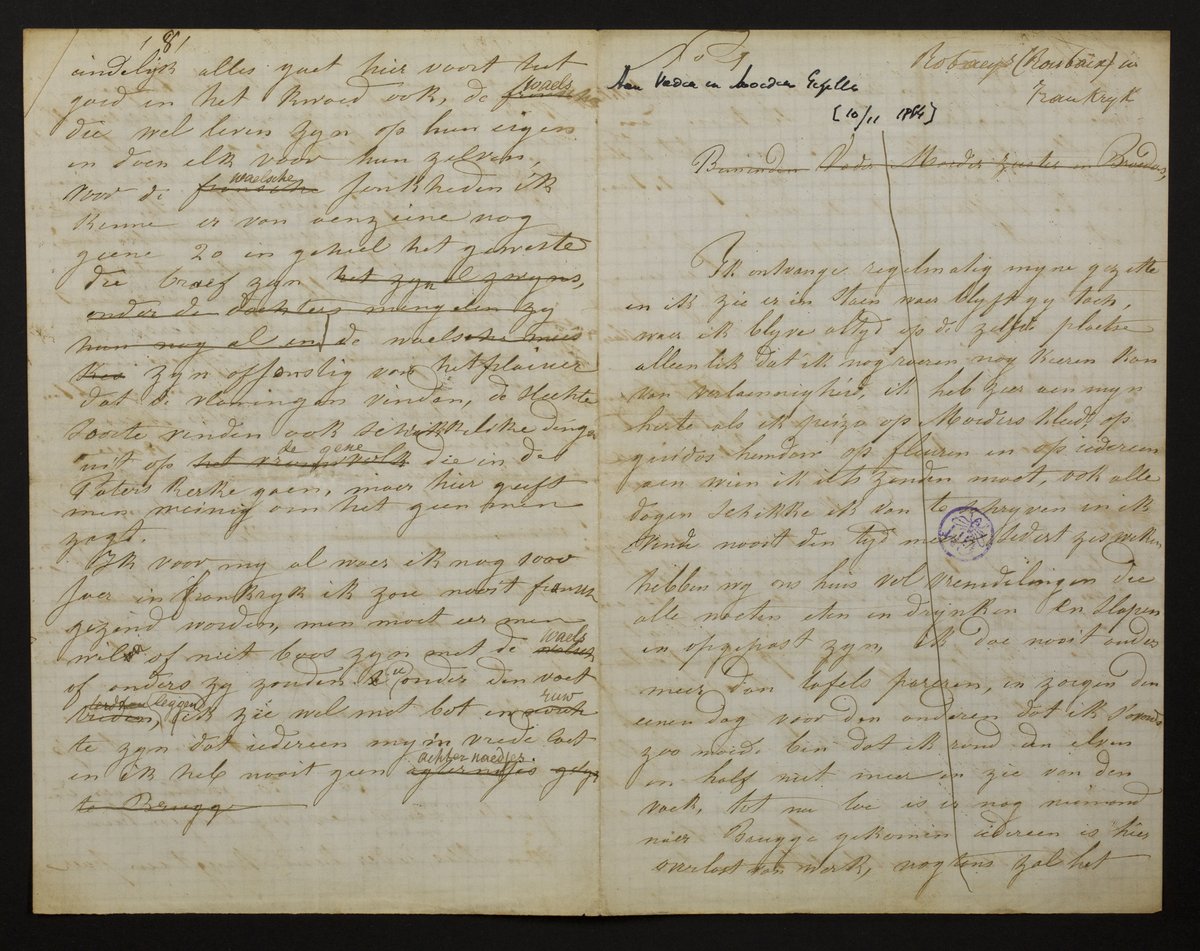 181
eindelijk alles gaet hier voort het
goed en het kwaed ook, de waels
die wel leven zyn op hun eigen
en doen elk voor hun zelven,
voor de fransche waelsche jonkheden ik
kenne er van aenziene nog
geene 20 in geheel het geweste
die braef zyn het zyn al zwyns,
onder de dochters mengelen zy
hun nog al en de waelsche
zyn offenstig van het plaisier
dat de vlamingen vinden, de slechte
soorte vinden ook schrikkelike dingen
uit op het vrouwvolk de gene die in de
Paters kerke gaen, maer hier geeft
men weinig om het geen men
zegt.
Ik voor my al waer ik nog 100
jaer in frankryk ik zoe nooit fransch
gezind worden, men moet eer men
wil of niet boos zyn met de waels
of anders zy zouden u onder den voet
leggen, ik zie wel met bot en ruw
te zyn dat iedereen my in vrede laet
en ik heb nooit geen achternaedjes
te Brugge
No 7
Aan Vader en Moeder Gezelle
[10/11 1884]
Robaeys (Roubaix) in
Frankryk
Beminden Vader Moeder zuster en Broeders,
Ik ontvange regelmatig myne gazette
en ik zie er in staen waer blyft gy toch,
waer ik blyve altyd op de zelfde plaetse
alleenlik dat ik nog roeren nog keeren kan
van verlaenrigheid, ik heb zeer aen myn
herte als ik peize op Moeders kleed op
guidos hemdom op fleuren en op iedereen
aen wien ik iets zenden moet, ook alle
dagen schikke ik van te schryven en ik
vinde nooit den tyd meer sedert zes weken
hebben wy ons huis vol vremdelingen die
alle moeten eten en drynken en slapen
en opgepast zyn, ik doe nooit anders
meer dan tafels pareren, en zorgen den
eenen dag voor den anderen dat ik s'avonds
zoo moede ben dat ik rond den elven
en half niet meer en zie van den
vaek, tot nu toe is er nog niemand
naer Brugge gekomen iedereen is hier
overlast van werk, nogtans zal het